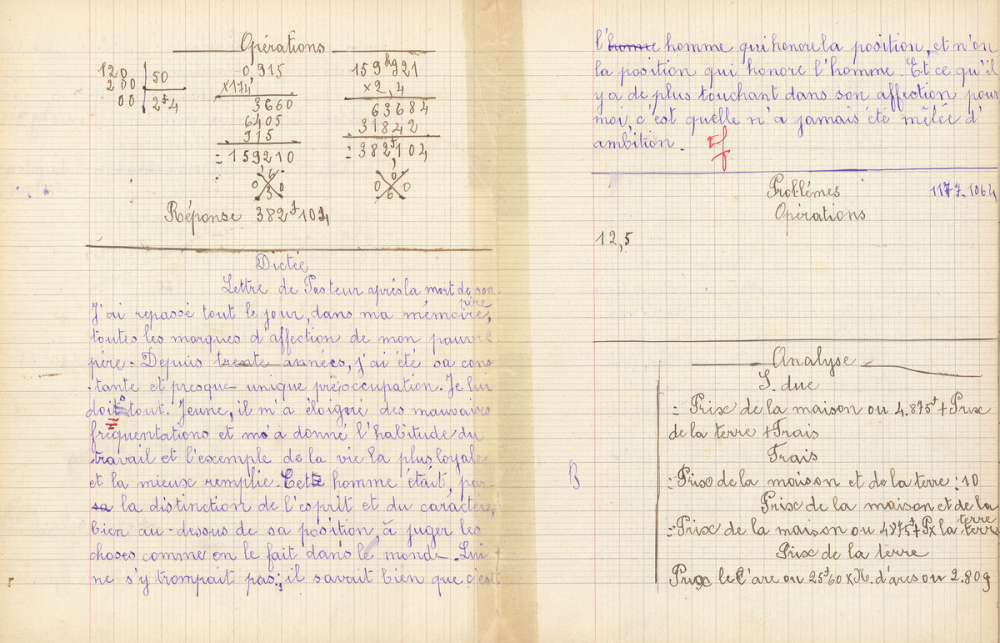 Opérations
120 | 50
200
00 | 2f4
0,915
×174
3660
6405
915
=159210
6
0 0
3
159h321
×2,4
63684
31842
=382f104
0
0 0
6
Réponse 382f104
Dictée
Lettre de Pasteur après la mort de son
père
J'ai repassé tout le jour, dans ma mémoire,
toutes les marques d'affection de mon pauvre
père. Depuis trente années, j'ai été sa cons
tante et presque unique préoccupation. Je lui
dois tout. Jeune, il m'a éloigné des mauvaises
fréquentations et m'a donné l'habitude du
travail et l'exemple de la vie la plus loyale
et la mieux remplie. Cet homme était, par
sa la distinction de l'esprit et du caractère,
bien au-dessus de sa position, à juger les
choses comme on le fait dans le monde. Lui
ne s'y trompait pas; il savait bien que c'est
l'homme homme qui honore la position, et n'on
la position qui honore l'homme. Et ce qu'il
y a de plus touchant dans son affection pour
moi, c'est quelle n'a jamais été mêlée d'
ambition.
Problèmes 1177.1064
Opérations
12,5
Analyse
S. due
= Prix de la maison ou 4.875f + Prix
de la terre + Frais
Frais
B
= Prix de la maison et de la terre : 10
Prix de la maison et de la
terre
= Prix de la maison ou 4875f + Px la terre
Prix de la terre
Prix le l'are ou 25f60 × N. d'ares ou 2.809